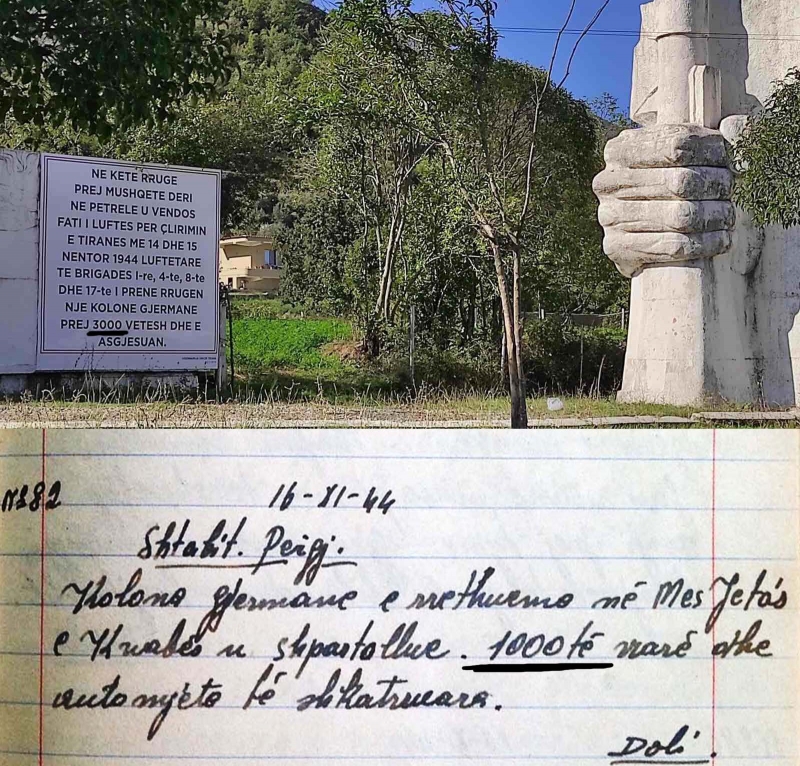 NE KETE RRUGE
PREJ MUSHQETE DERI
NE PETRELE U VENDOS
FATI I LUFTES PER ÇLIRIMIN
E TIRANES ME 14 DHE 15
NENTOR 1944 LUFTETARE
TE BRIGADES I-re, 4-te, 8-te
DHE 17-te I PRENE RRUGEN
NJE KOLONE GJERMANE
PREJ 3000 VETESH DHE E
ASGJESUAN.
16-XI-44
Shtabit. Përgj.
Kolona gjermane e rrethueme në Mes
e u shpartallue. 1000 të vrarë dhe
automjete të shkatrruara.